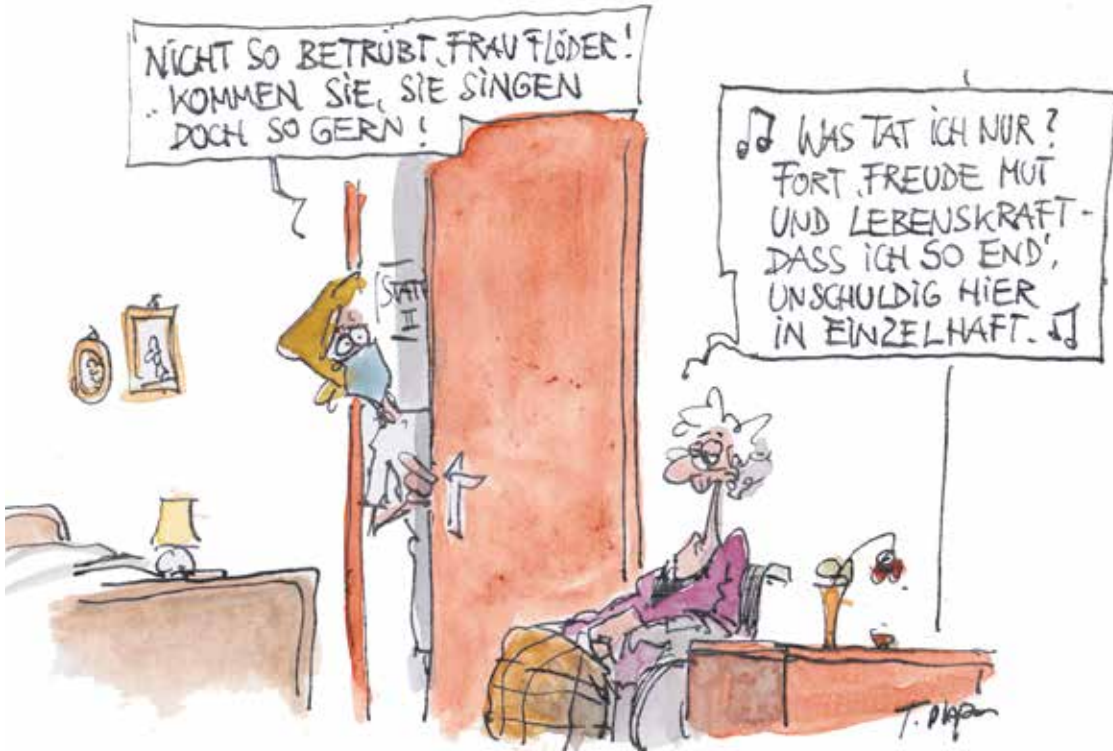 NICHT SO BETRÜBT, FRAU FLÖDER!
KOMMEN SIE, SIE SINGEN
DOCH SO GERN!
STATI
II
WAS TAT ICH NUR?
FORT, FREUDE MUT
UND LEBENSKRAFT -
DASS ICH SO END',
UNSCHULDIG HIER
IN EINZELHAFT.